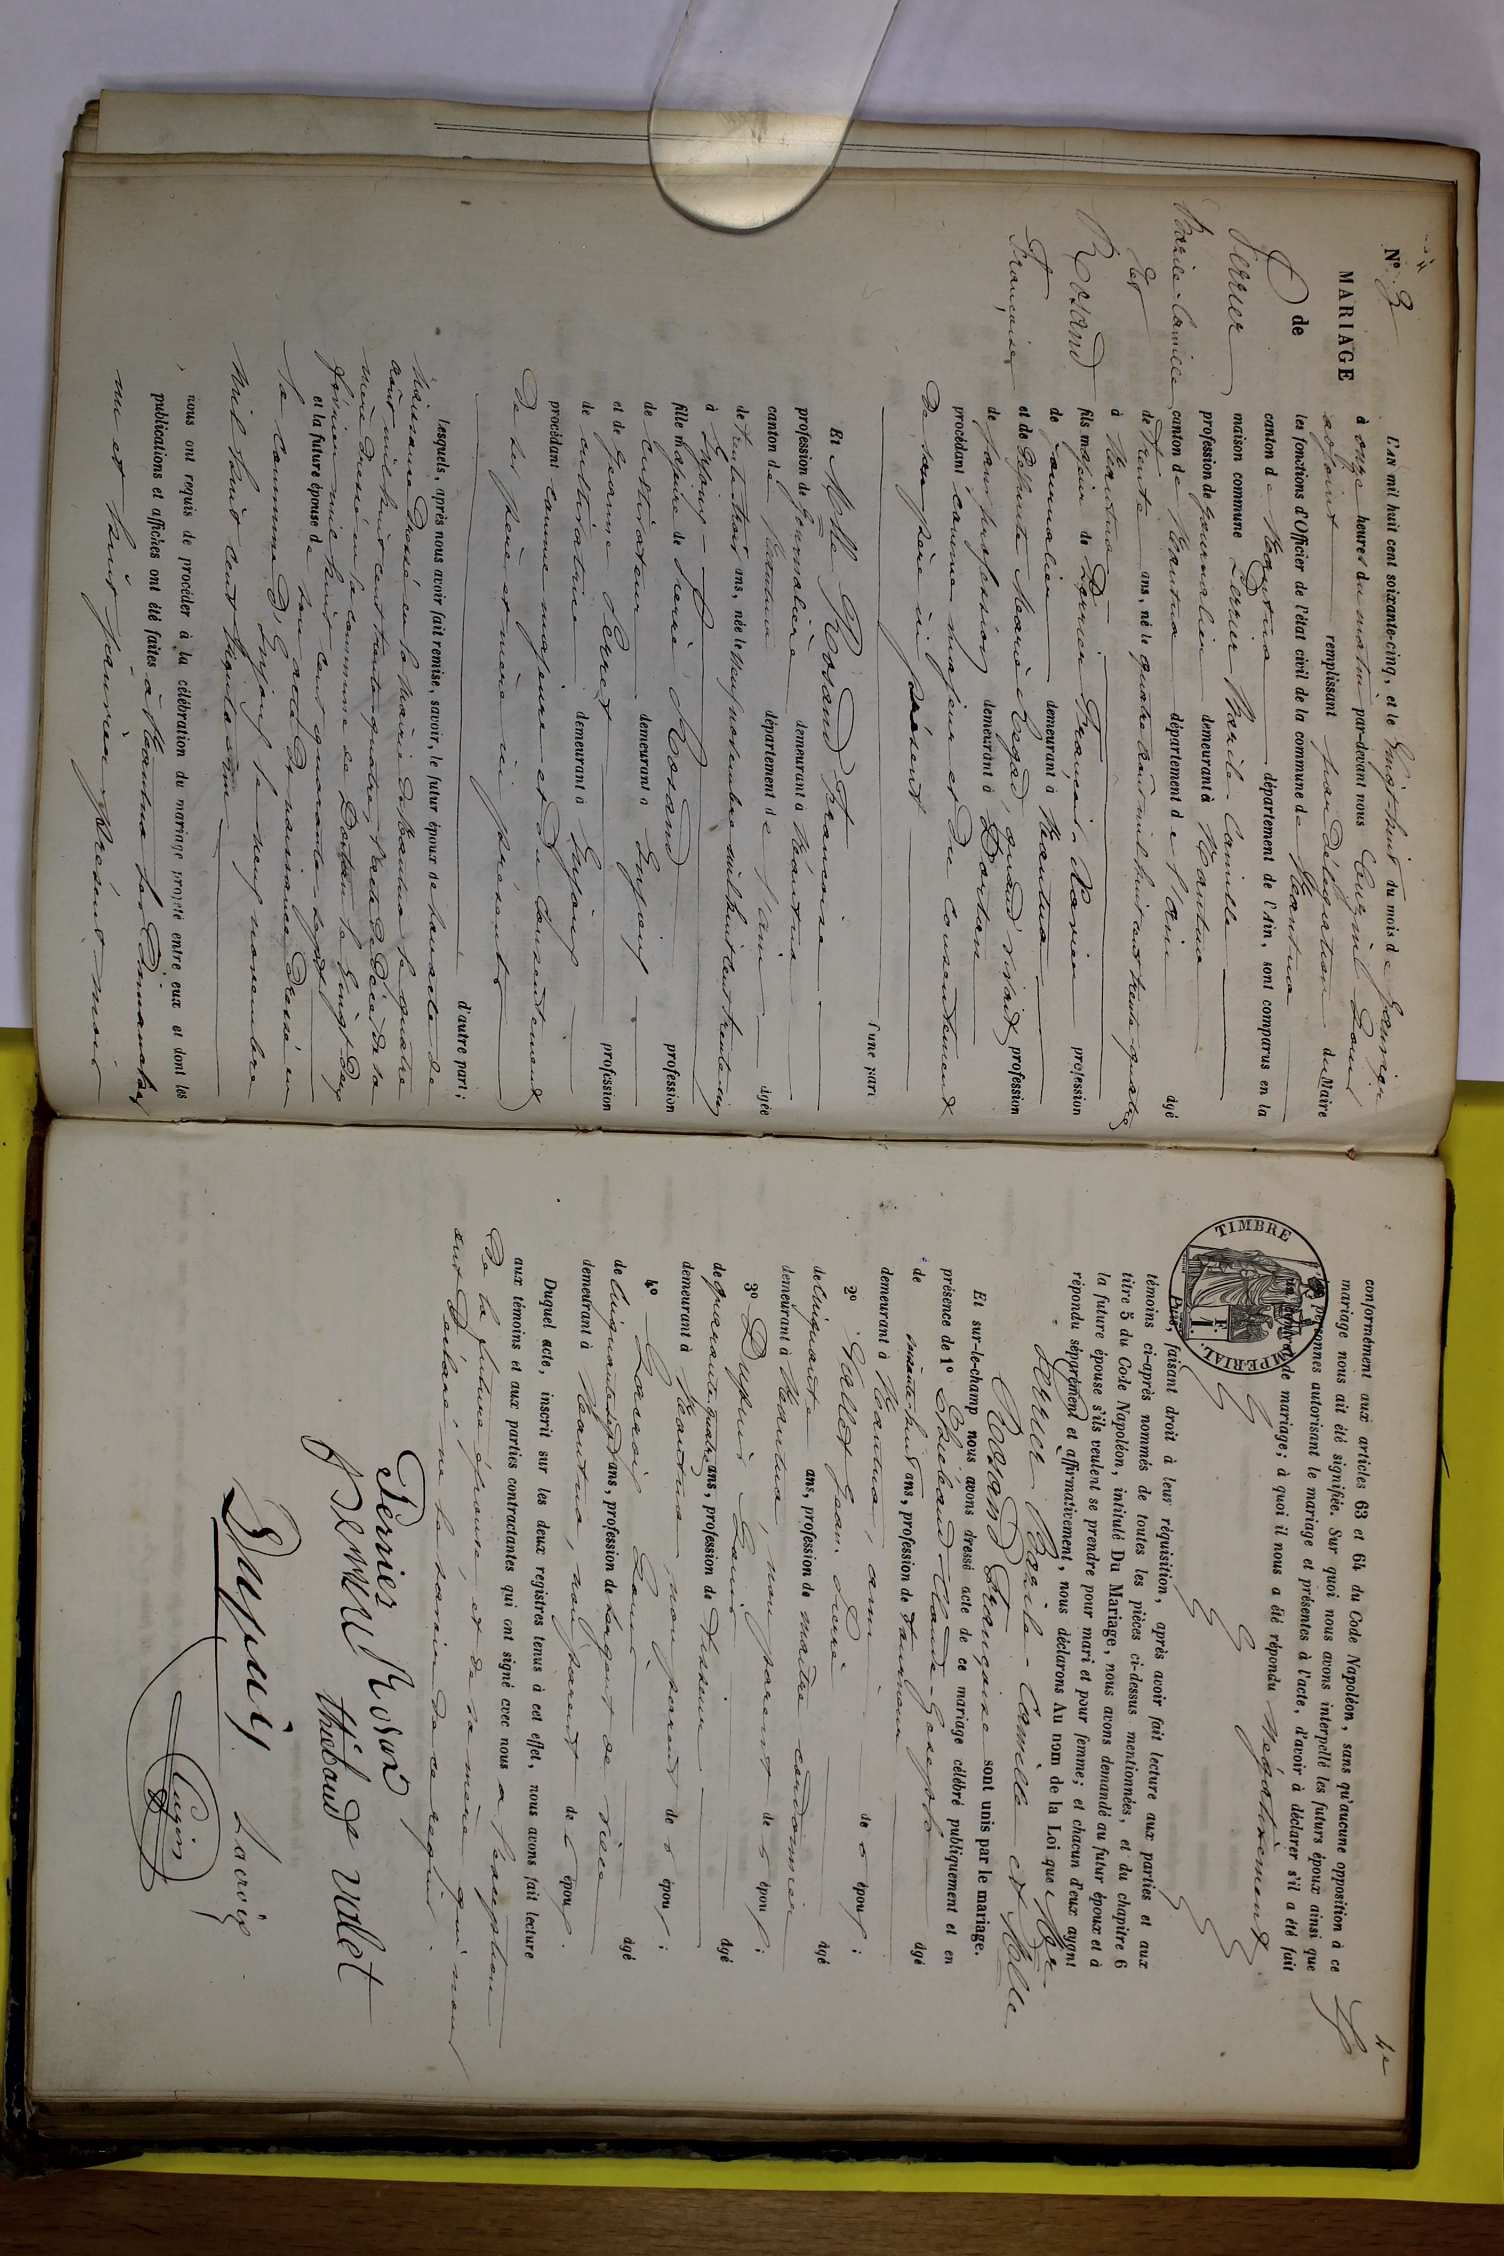 N° 3
MARIAGE
de
Perrier
Basile-Camille
Et
Rosand
Françoise
L'AN mil huit cent soixante-cinq, et le vingt huit du mois de Janvier
à onze heures du matin par-devant nous Eugène
adjoint remplissant par délégation du Maire
les fonctions d'Officier de l'état civil de la commune de Nantua
canton de Nantua département de l'Ain, sont comparus en la
maison commune Perrier Basile-Camille
profession de journalier demeurant à Nantua
canton de Nantua département de l'ain âgé
de trente ans, né le quatre août mil huit cent trente quatre
à Nantua
fils majeur de Perrier François Xavier profession
de journalier demeurant à Nantua
et de défunte Marie quand vivait profession
de sans profession demeurant à Dortan
procédant comme majeur et du consentement
de son père ici présent
d'une part
Et Mlle Rosand Françoise
profession de journalière demeurant à Nantua
canton de Nantua département de l'ain âgée
de trente trois ans, née le neuf novembre mil huit cent trente un
à
fille majeure de Pierre Rosand profession
de cultivateur demeurant à
et de Jeanne Perret profession
de cultivatrice demeurant à
procédant comme majeure et du consentement
de ses père et mère ici présents
d'autre part;
Lesquels, après nous avoir fait remise, savoir, le futur époux de son acte de
naissance dressé en la mairie de Nantua le quatre
août mil huit cent trente quatre, l'acte de décès de sa
mère dressé en la commune de Dortan le vingt deux
février mil huit cent quarante sept
et la future épouse de son acte de naissance dressé en
la commune d' le neuf novembre
mil huit cent trente un
nous ont requis de procéder à la célébration du mariage projeté entre eux et dont les
publications et affiches ont été faites à Nantua les dimanches
et huit janvier présent mois
4e
conformément aux articles 63 et 64 du Code Napoléon, sans qu'aucune opposition à ce
mariage nous ait été signifiée. Sur quoi nous avons interpellé les futurs époux ainsi que
personnes autorisant le mariage et présentes à l'acte, d'avoir à déclarer s'il a été fait
un contrat de mariage; à quoi il nous a été répondu négativement
TIMBRE IMPÉRIAL
1 F.
Puis, faisant droit à leur réquisition, après avoir fait lecture aux parties et aux
témoins ci-après nommés de toutes les pièces ci-dessus mentionnées, et du chapitre 6
titre 5 du Code Napoléon, intitulé Du Mariage, nous avons demandé au futur époux et à
la future épouse s'ils veulent se prendre pour mari et pour femme; et chacun d'eux ayant
répondu séparément et affirmativement, nous déclarons Au nom de la Loi que Mr
Perrier Basile-Camille et Mlle
Rosand Françoise sont unis par le mariage.
Et sur-le-champ nous avons dressé acte de ce mariage célébré publiquement et en
présence de 1° Thiébaud Claude-Joseph âgé
de soixante huit ans, profession de tanneur
demeurant à Nantua, ami de l'époux;
2° Vallet Jean-Pierre âgé
de cinquante ans, profession de maître cordonnier
demeurant à Nantua, non parent de l'époux;
3° Dupuis Louis âgé
de quarante quatre ans, profession de tisseur
demeurant à Nantua non parent de l'époux;
4° Lacroix Louis âgé
de cinquante sept ans, profession de sergent de ville
demeurant à Nantua, non parent de l'époux.
Duquel acte, inscrit sur les deux registres tenus à cet effet, nous avons fait lecture
aux témoins et aux parties contractantes qui ont signé avec nous à l'exception
de la future épouse, et de sa mère qui nous
ont déclaré ne le savoir de ce requis.
Perrier Rosand
Perrier thiebaud vallet
Dupuis Lacroix